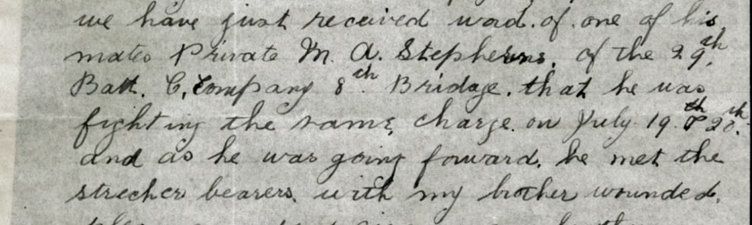 we have just received word. of. one of his
mates Private M. A. Stephens. of the 29th
Batt. C, Company 8th Bridage. that he was
fighting the same, charge. on July 19.th & 20.th
and as he was going forward. he met the
strecher bearers. with my brother wounded.